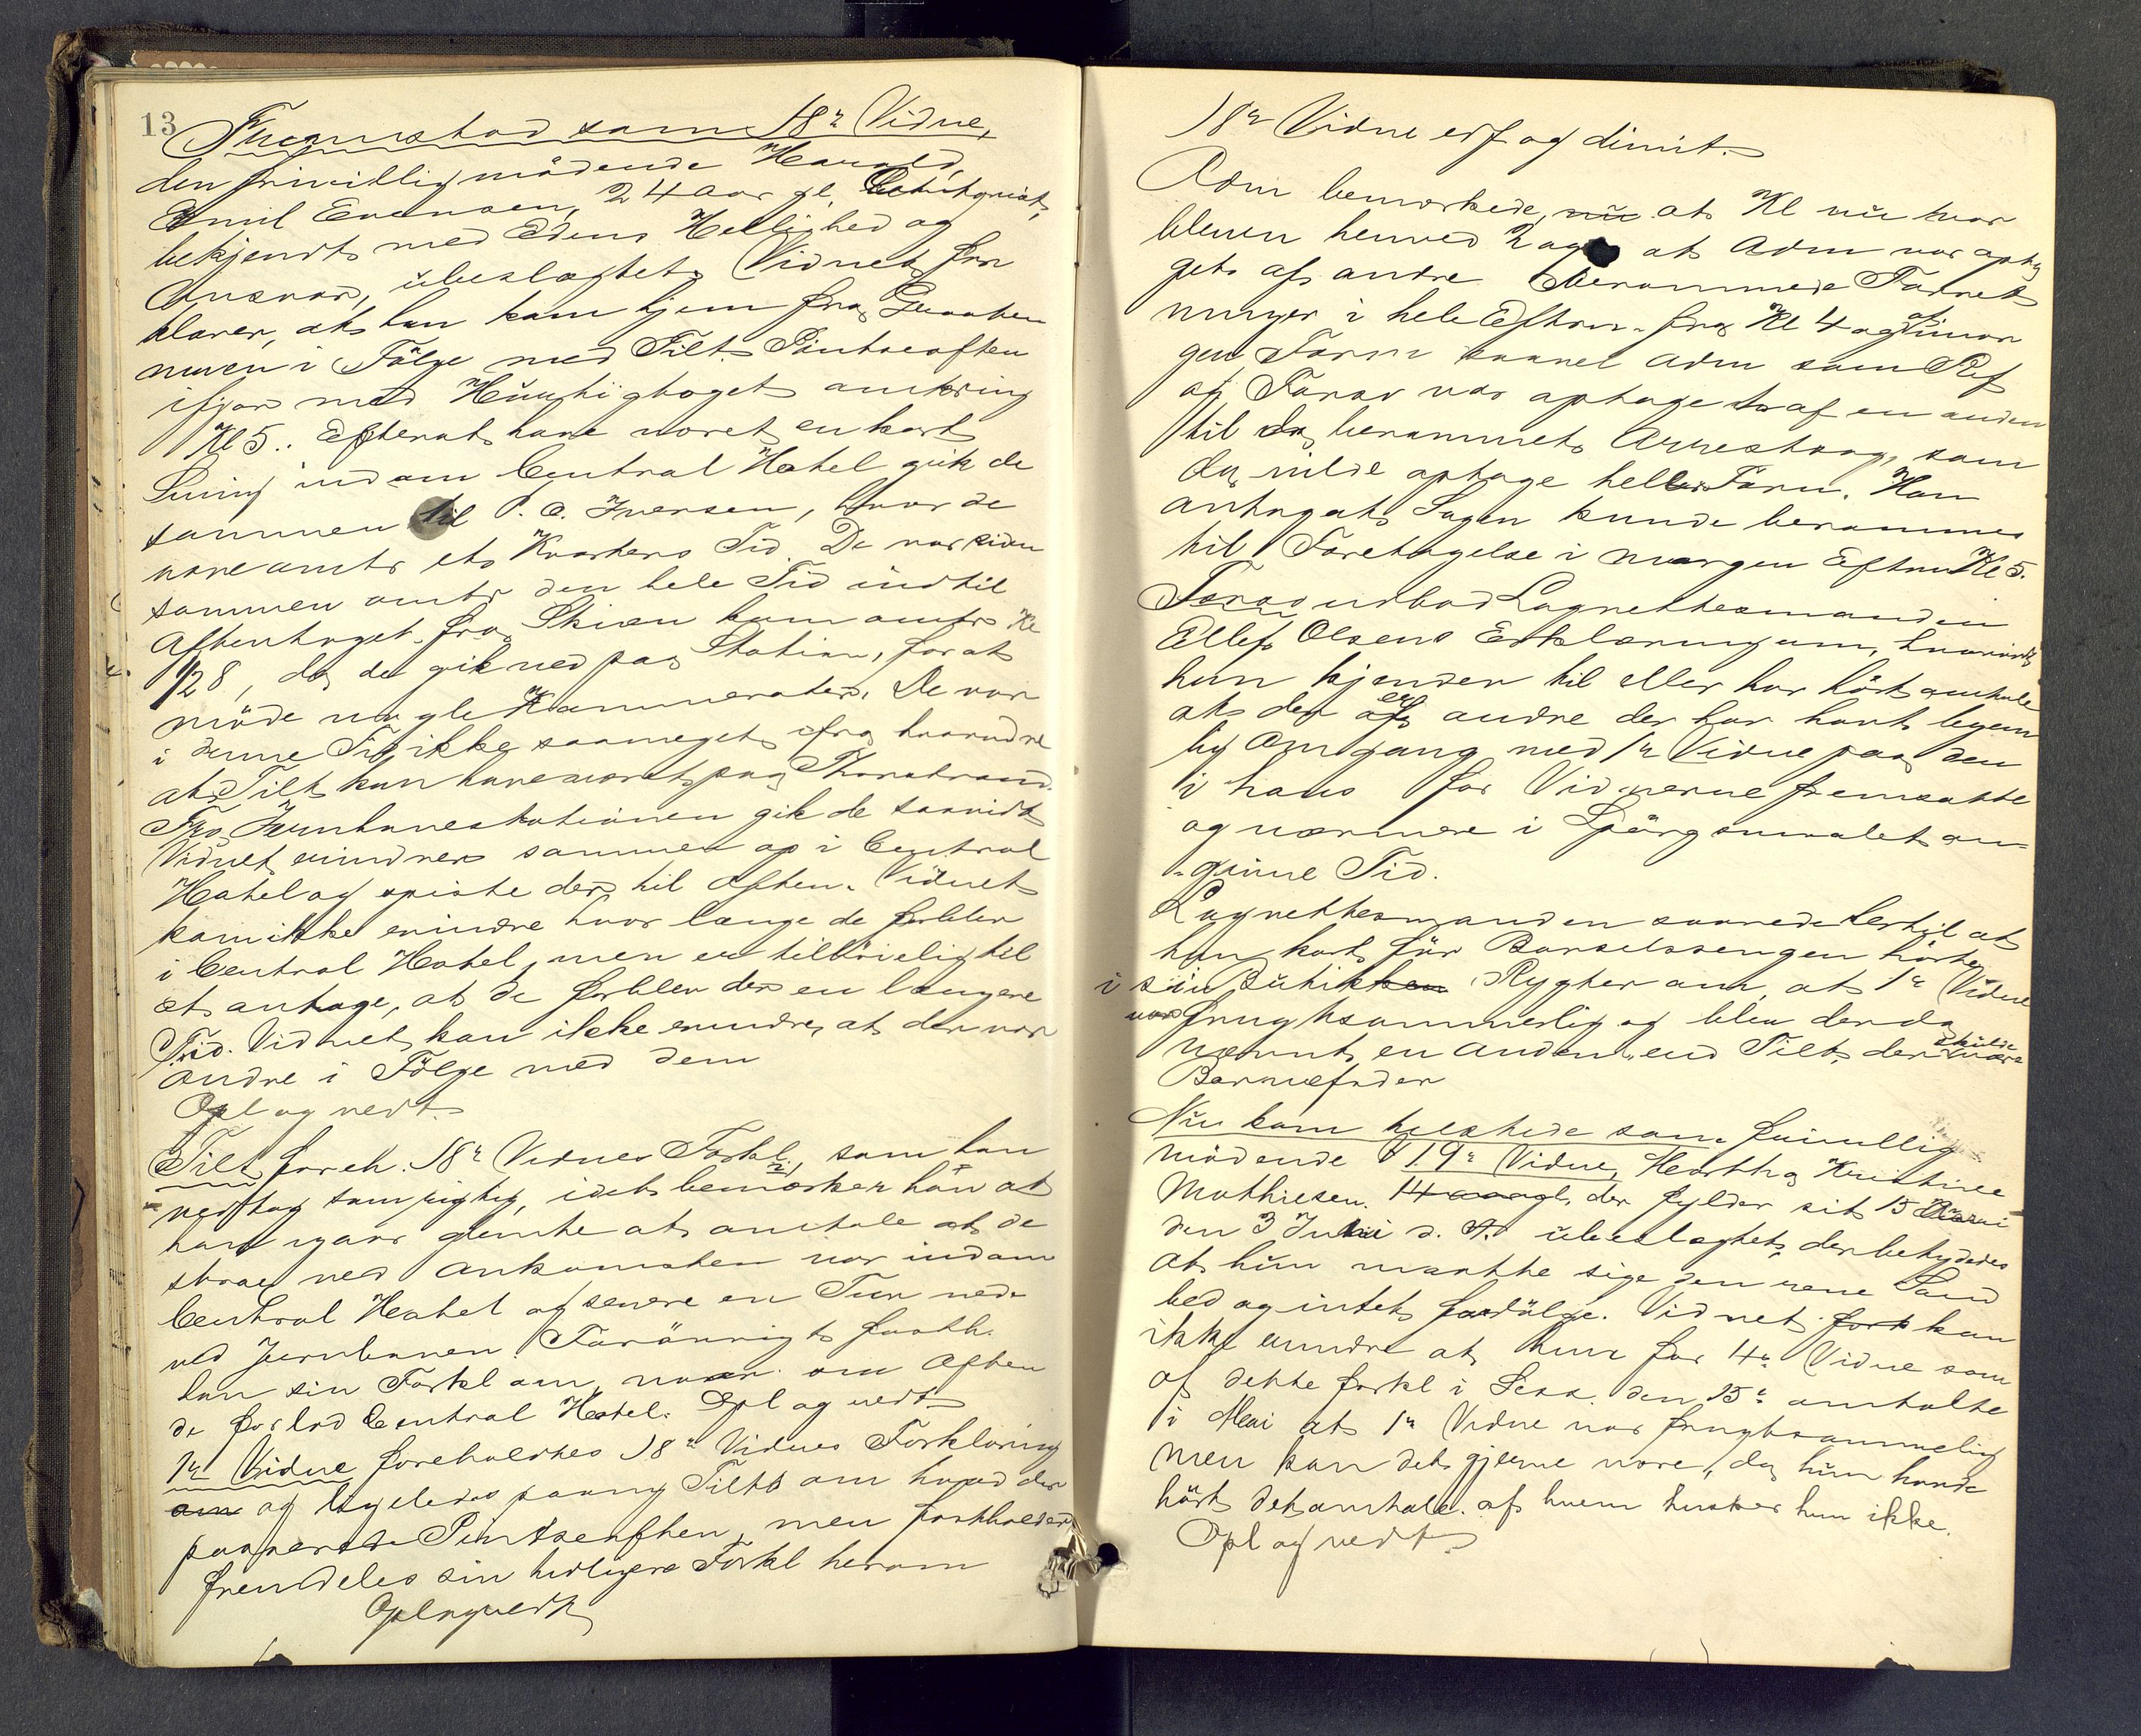 13
Fremstod som 18de Vidne,
den frivillig mødende Harald
Emil Evensen, 24 aar gl,
bekjendt med Edens Hellighed og
Ansvar, ubeslægtet. Vidnet for
klarer, at han kom hjem fra
i Følge med Tilt. Pintseaften
ifjor med Hurtigtoget omkring
Kl 5. Efterat have været en kort
Sving indom Central Hotel gik de
sammen til P. A. Iversen, hvor de
vare omtr et Kvarters Tid. De var siden
sammen omtr den hele Tid indtil
Aftentoget fra Skien kom omtr Kl
1/2 8, da de gik ned paa Station, for at
møde nogle Kammerater. De var
i denne Tid ikke saameget ifra hverandre
at Tilt kan have været paa
Fra Jernbanestationen gik de saavidt
Vidnet erindrer sammen op i Central
Hotel og spiste der til Aften. Vidnet
kan ikke erindre hvor længe de forblev
i Central Hotel, men er tilbøielig til
at antage, at de forblev der en længere
Tid. Vidnet kan ikke erindre, at der var
andre i Følge med dem
Opl og vedt.
Tilt foreh. 18de Vidnes Forkl, som han
vedtog som rigtig, idet bemærker han at
han igaar glemte at omtale at de
strax ved Ankomsten var indom
Central Hotel og senere en Tur nede
ved Jernbanen. Forøvrigt fasth.
han sin Forkl om, naar om Aften
de forlod Central Hotel. Opl og vedt.
1ste Vidne foreholdtes 18de Vidnes Forklaring
om og ligeledes paany Tilts om hvad der
passerede Pintseaften, men fastholder
fremdeles sin tidligere Forkl herom
Opl og vedt.
18de Vidne erf og dimit.
Adm bemærkede, nu at Kl nu var
bleven henved 2 og at Adm var opta
get af andre berammede Forret
ninger i hele Efterm. fra Kl 4 og imor
gen Form saavel Adm som Ref
og Forsv var optaget af en anden
til da berammet Arrestsag, som
da vilde optage hele Form. Han
antog at Sagen kunde berammes
til Foretagelse i morgen Efterm Kl 5.
Forsv udbad Lagrettesmanden
Ellef Olsens Erklæring om, hvorvidt
han kjender til eller har hørt omtale
at der er andre der har havt legem
lig Omgang med 1ste Vidne paa den
i hans for Vidnerne fremsatte
og nærmere i Spørgsmaalet an-
givne Tid.
Lagrettesmanden svarede hertil at
han kort før Barselssengen hørte
i sin Butik Rygter om, at 1ste Vidne
var frugtsommelig og blev der da
nævnt en anden, end Tilt, der skulde være
Barnefader
Nu kom tilstede som frivillig
mødende 19de Vidne, Hertha Kristine
Mathiesen, 14 aar gl, der fylder sit 15
den 3 Juli d. A. ubeslægtet, der betydedes
at hun maatte sige den rene Sand
hed og intet fordølge. Vidnet fork kan
ikke erindre at hun for 4de Vidne som
af dette forkl i Sess. den 15de omtalte
i Mai at 1ste Vidne var frugtsommelig
men kan det gjerne være, da hun havde
hørt det omtale. af hvem husker hun ikke.
Opl og vedt.